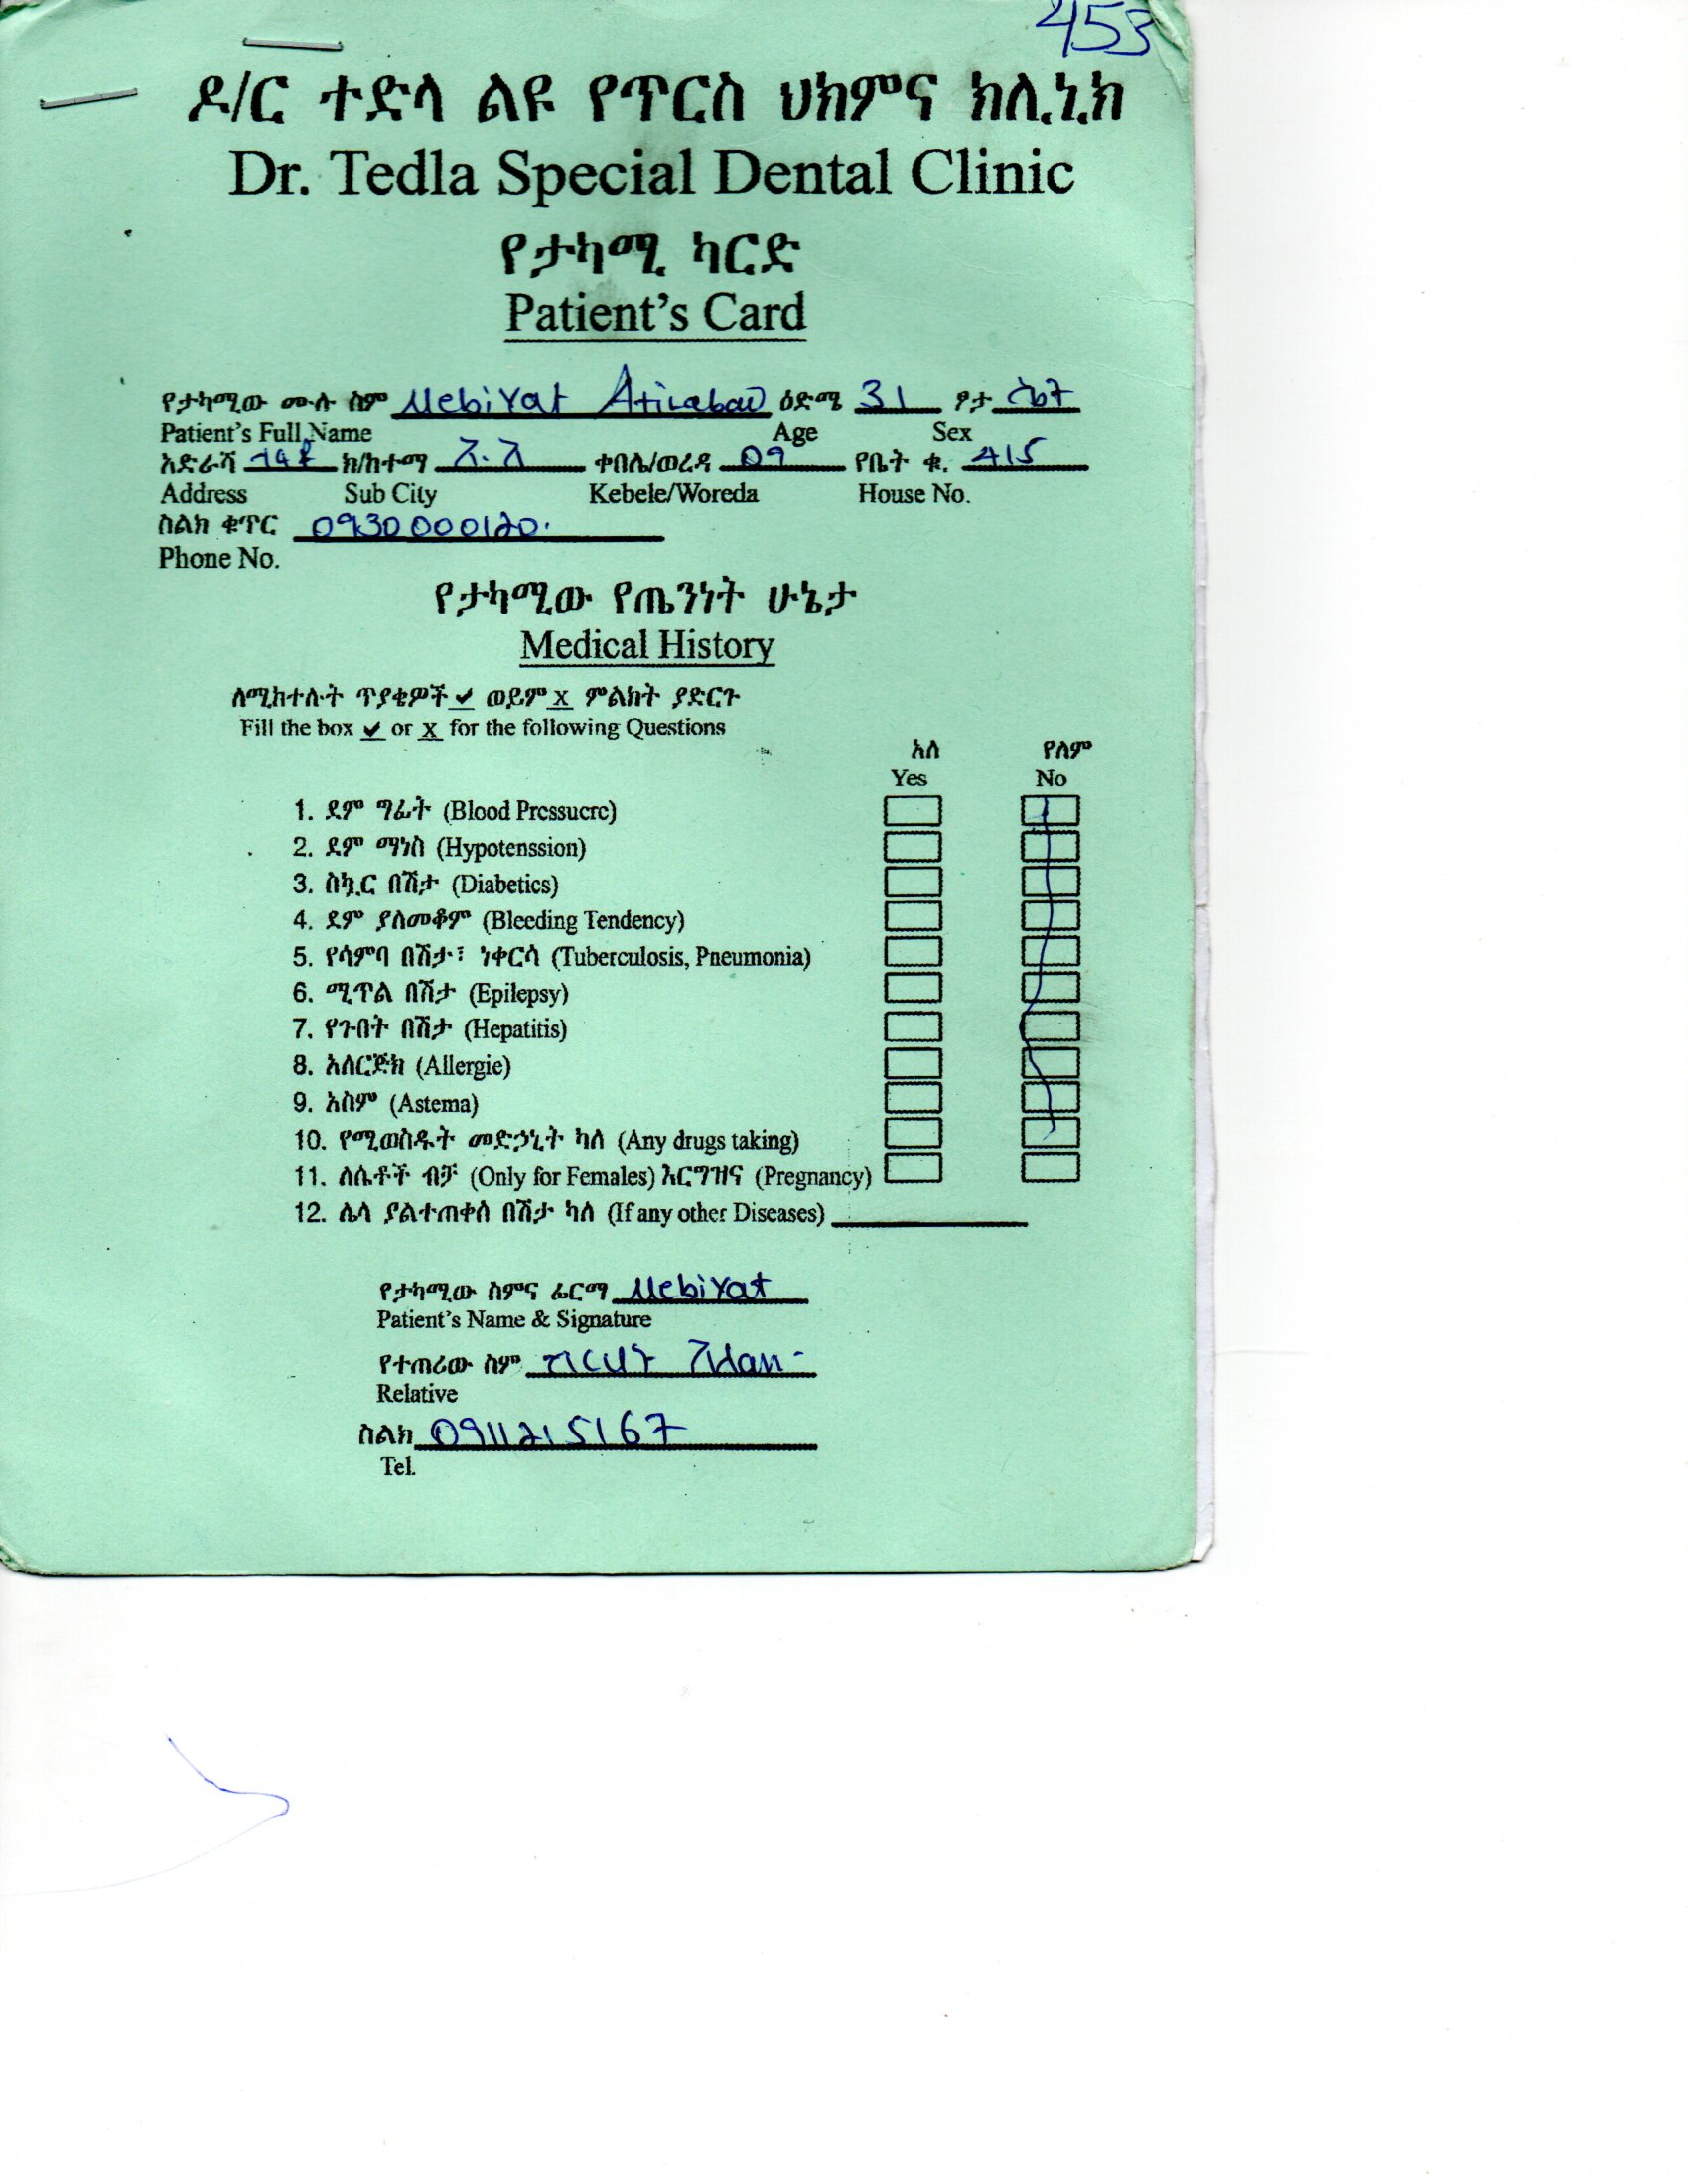 453
ዶ/ር ተድላ ልዩ የጥርስ ህክምና ክሊኒክ
Dr. Tedla Special Dental Clinic
የታካሚ ካርድ
Patient's Card
የታካሚው ሙሉ ስም Mebiyat ዕድሜ 31 ፆታ ሴት
Patient's Full Name Age Sex
አድራሻ ክ/ከተማ ቀበሌ/ወረዳ 09 የቤት ቁ. 415
Address Sub City Kebele/Woreda House No.
ስልክ ቁጥር 0930000120
Phone No.
የታካሚው የጤንነት ሁኔታ
Medical History
ለሚከተሉት ጥያቄዎች ✓ ወይም X ምልክት ያድርጉ
Fill the box ✓ or X for the following Questions
አለ የለም
Yes No
1. ደም ግፊት (Blood Pressucre)
2. ደም ማነስ (Hypotenssion)
3. ስኳር በሽታ (Diabetics)
4. ደም ያለመቆም (Bleeding Tendency)
5. የሳምባ በሽታ፣ ነቀርሳ (Tuberculosis, Pneumonia)
6. ሚጥል በሽታ (Epilepsy)
7. የጉበት በሽታ (Hepatitis)
8. አለርጅክ (Allergie)
9. አስም (Astema)
10. የሚወስዱት መድኃኒት ካለ (Any drugs taking)
11. ለሴቶች ብቻ (Only for Females) እርግዝና (Pregnancy)
12. ሌላ ያልተጠቀሰ በሽታ ካለ (If any other Diseases)
የታካሚው ስምና ፊርማ Mebiyat
Patient's Name & Signature
የተጠሪው ስም
Relative
ስልክ 0911215167
Tel.